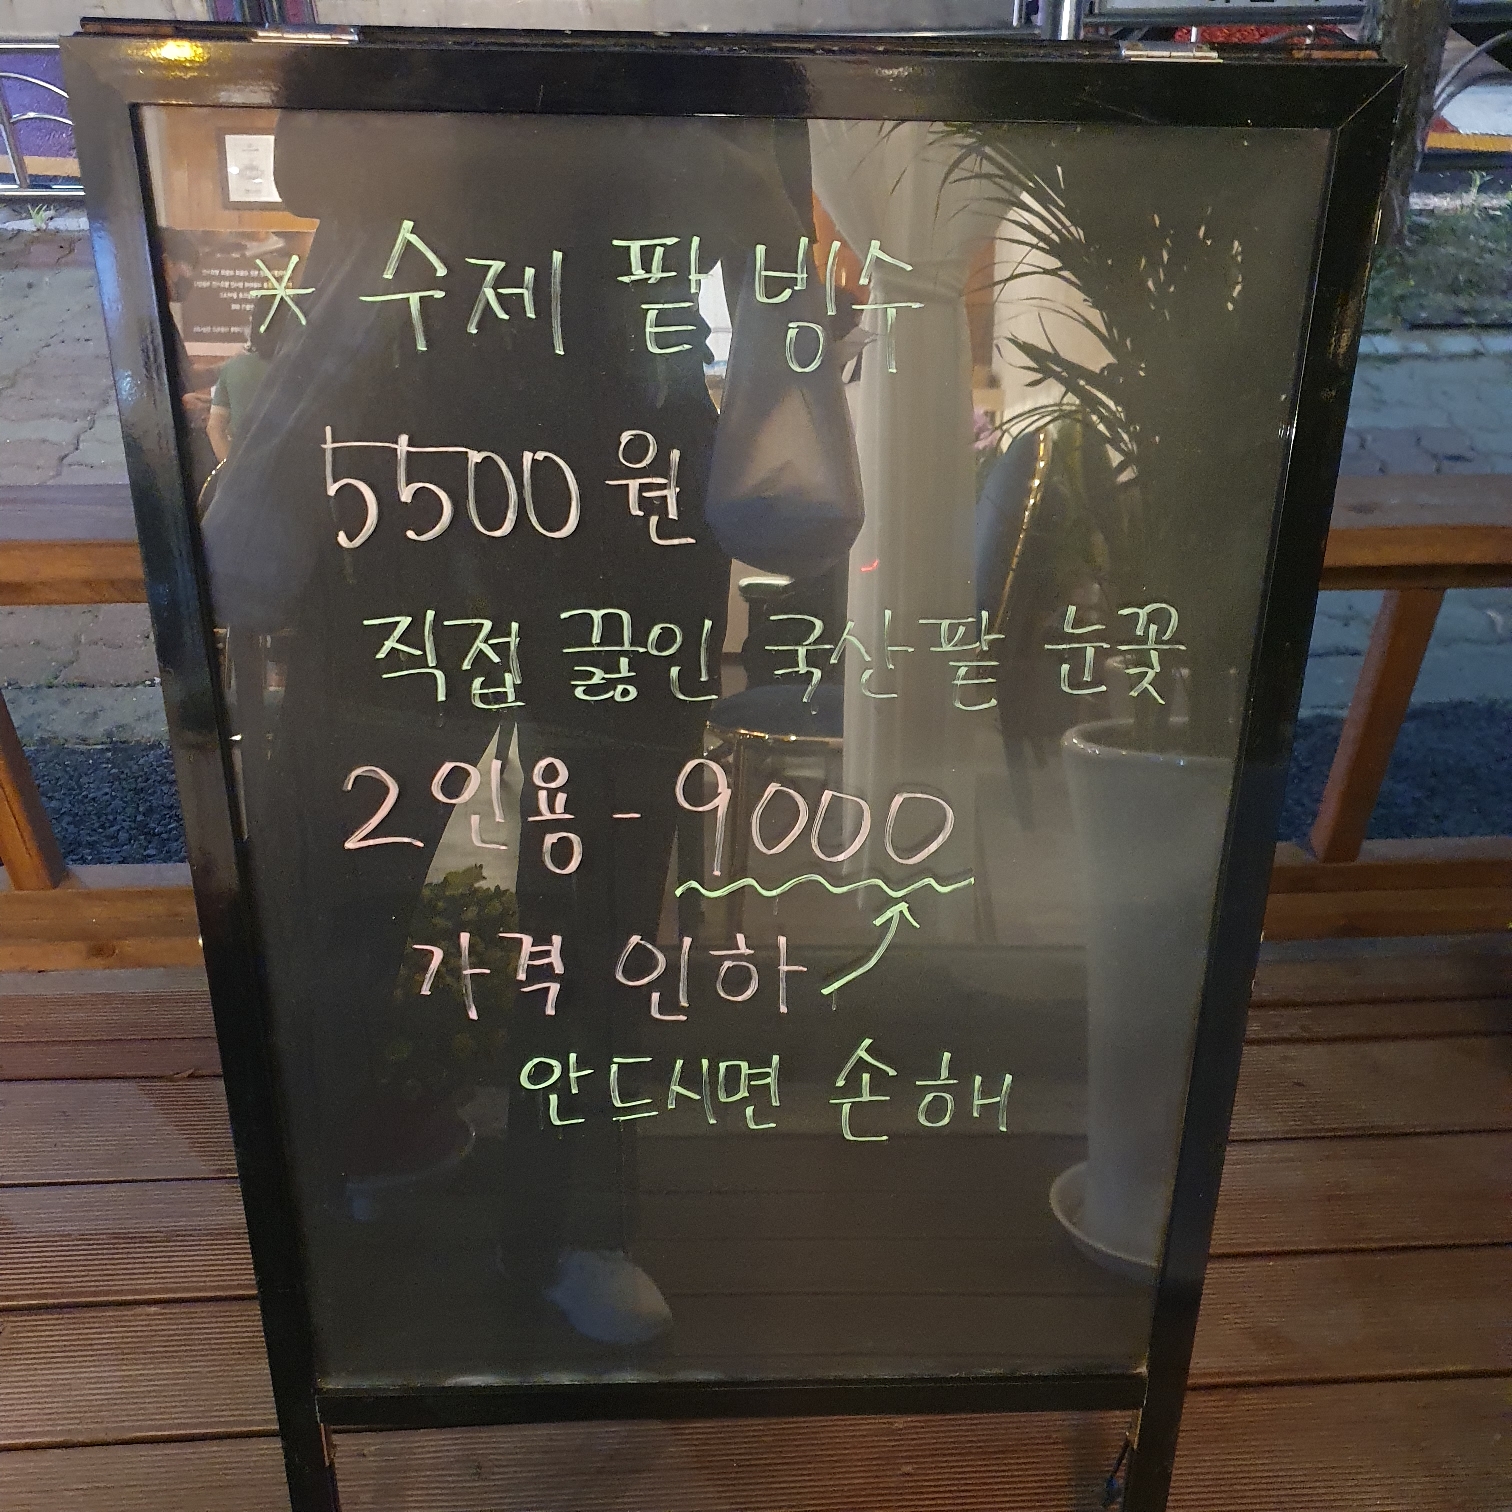 * 수제 팥 빙수
5500 원
직접 끓인 국산팥 눈꽃
2인용 - 9000
가격 인하
안드시면 손해